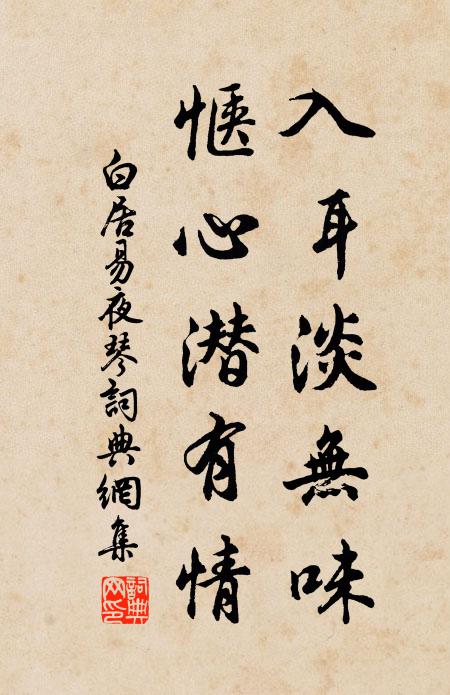 入耳淡無味
惬心潜有情
白居易夜琴詞典網集
詞典网印